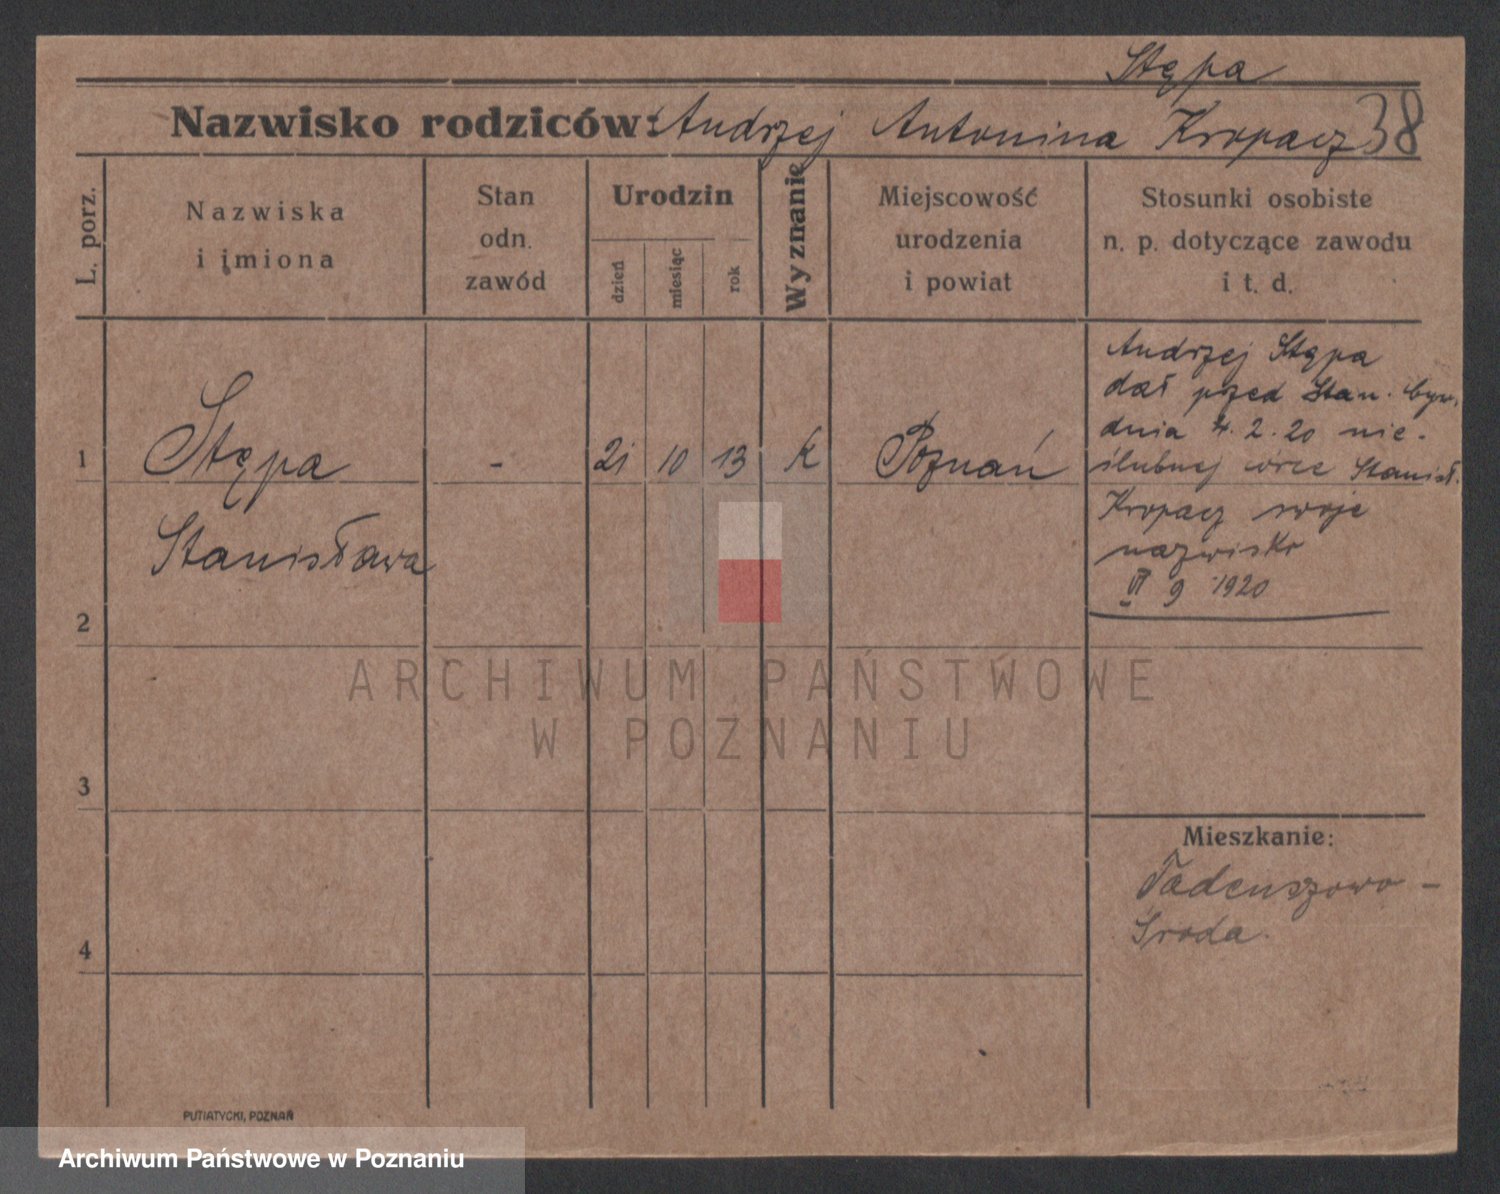 Stępa
Nazwisko rodziców: Andrzej Antonina Kropacz 38
L. porz.
Nazwiska
i imiona
Stan
odn.
zawód
Urodzin
dzień
miesiąc
rok
Wyznanie
Miejscowość
urodzenia
i powiat
Stosunki osobiste
n. p. dotyczące zawodu
i t. d.
1
Stępa
Stanisława
-
21
10
13
K
Poznań
Andrzej Stępa
dał przed Stan. Cyw.
dnia 4. 2. 20 nie-
ślubnej córce Stanisł.
Kropacz swoje
nazwisko
VI 9 1920
2
3
4
Mieszkanie:
Tadeuszowo -
Środa.
PUTIATYCKI, POZNAŃ
ARCHIWUM PAŃSTWOWE
W POZNANIU
Archiwum Państwowe w Poznaniu